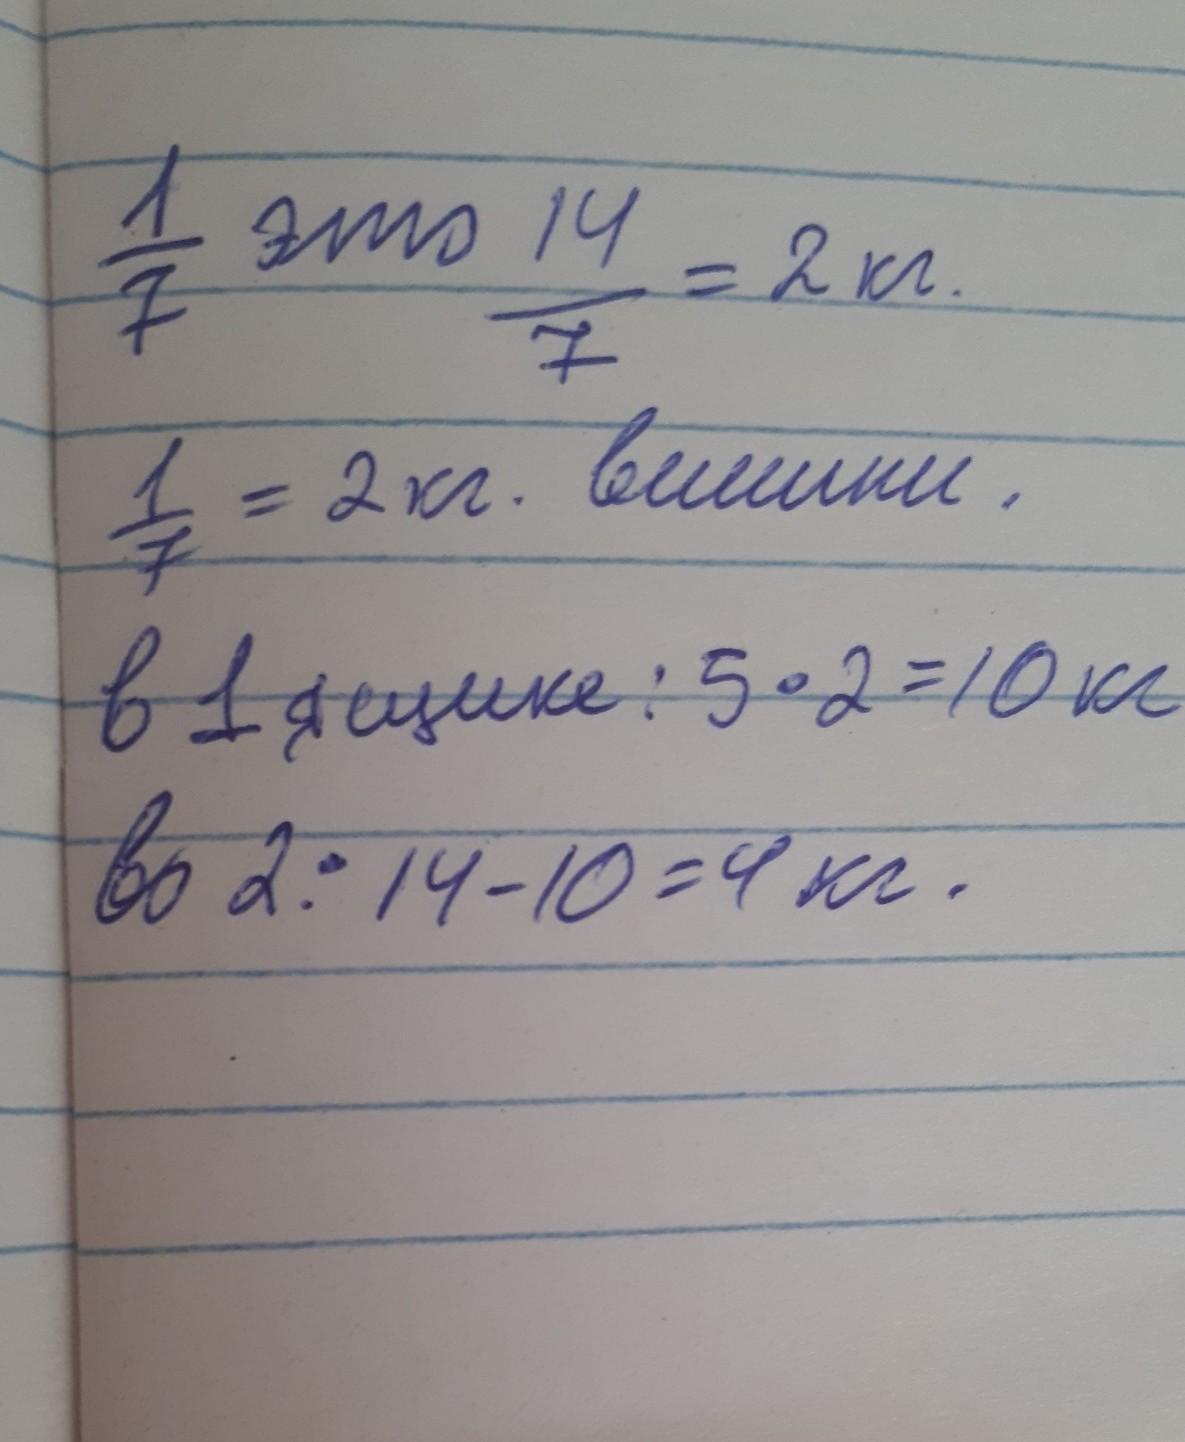 1/7 это 14/7 = 2 кг.
1/7 = 2 кг. вишни.
в 1 ящике: 5 • 2 = 10 кг
во 2: 14 - 10 = 4 кг.